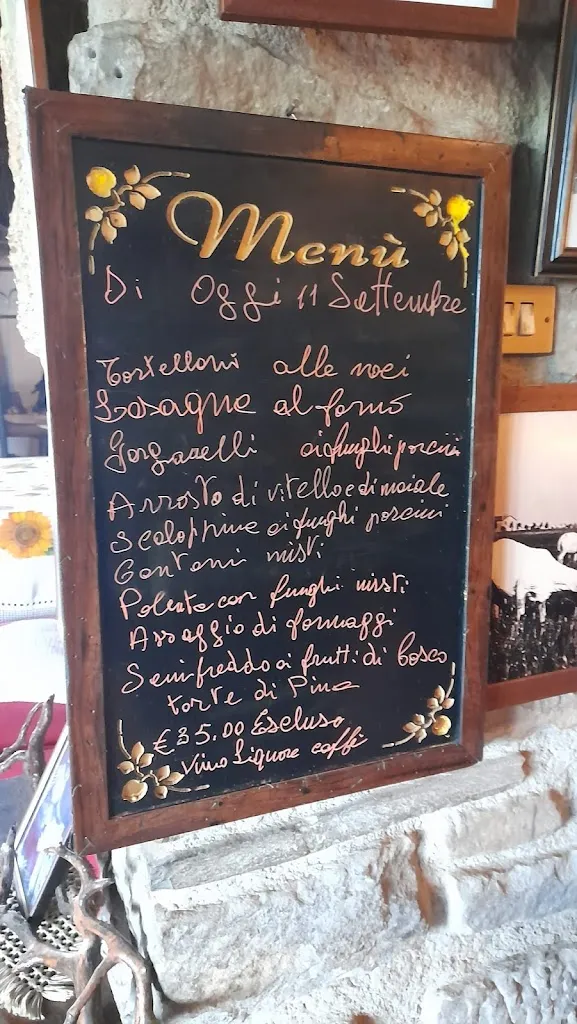 Menù
Di Oggi 11 Settembre
Tortelloni alle noci
Lasagne al forno
Gargarelli ai funghi porcini
Arrosto di vitello e di maiale
Scaloppine ai funghi porcini
Contorni misti
Polenta con funghi misti
Assaggio di formaggi
Semifreddo ai frutti di bosco
torte di Pina
€35.00 Escluso
Vino Liquore caffè